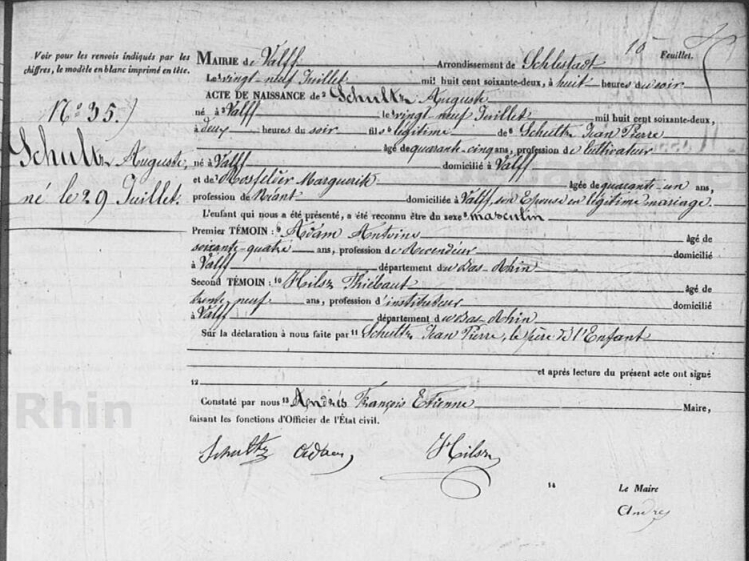 10 Feuillet.
Voir pour les renvois indiqués par les
chiffres, le modèle en blanc imprimé en tête.
N.º 35.
Schultz Auguste,
né le 29 Juillet.
MAIRIE de Valff Arrondissement de Schlestadt
Le vingt-neuf Juillet mil huit cent soixante-deux, à huit heures du soir
ACTE DE NAISSANCE de Schultz Auguste
né à Valff le vingt neuf Juillet mil huit cent soixante-deux,
à deux heures du soir fils légitime de Schultz Jean Pierre
âgé de quarante-cinq ans, profession de cultivateur
né à Valff domicilié à Valff
et de Mosfelder Marguerite âgée de quarante-un ans,
profession de Néant domiciliée à Valff, son Epouse en légitime mariage.
L'enfant qui nous a été présenté, a été reconnu être du sexe masculin
Premier TÉMOIN : 9 Adam Antoine âgé de
soixante-quatre ans, profession de domicilié
à Valff département du Bas-Rhin
Second TÉMOIN : 10 Hilsz Thiébaut âgé de
trente-neuf ans, profession d'instituteur domicilié
à Valff département du Bas-Rhin
Sur la déclaration à nous faite par 11 Schultz Jean Pierre, le père de l'Enfant
et après lecture du présent acte ont signé
12
Constaté par nous 13 Andrés François Etienne Maire,
faisant les fonctions d'Officier de l'État civil.
Schultz Adam Hilsz
14 Le Maire
Andres
Rhin